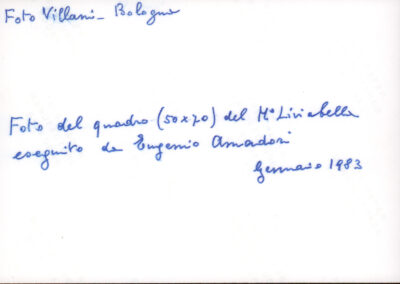 Foto Villani - Bologna
Foto del quadro (50x70) del M° Liviabella
eseguito da Eugenio Amadori
Gennaio 1983